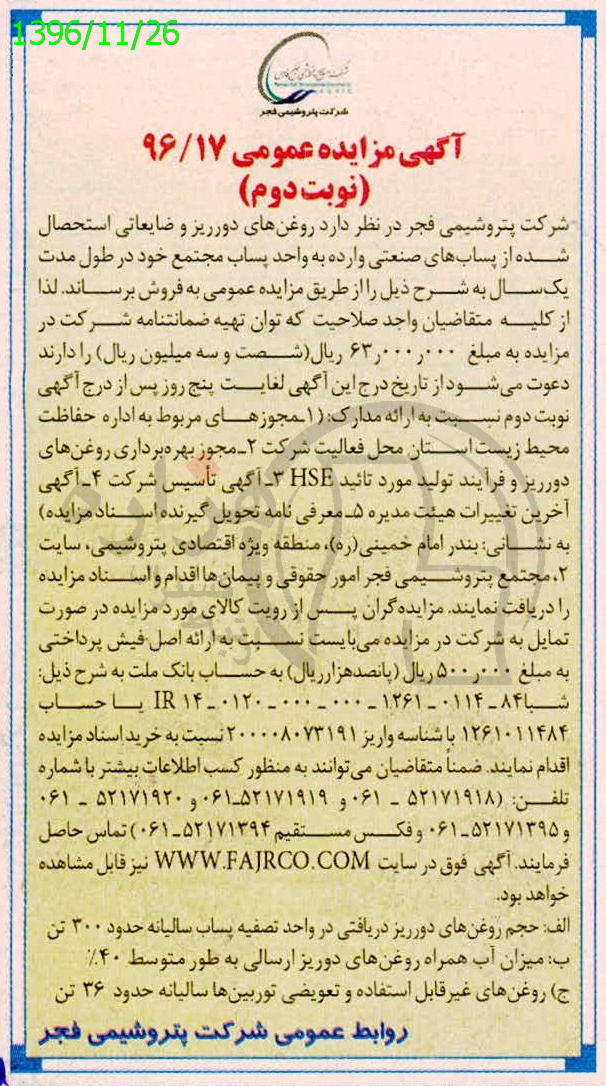 1396/11/26
شرکت پتروشیمی فجر
آگهی مزایده عمومی ۹۶/۱۷
(نوبت دوم)
شرکت پتروشیمی فجر در نظر دارد روغن‌های دورریز و ضایعاتی استحصال
شده از پساب‌های صنعتی وارده به واحد پساب مجتمع خود در طول مدت
یک‌سال به شرح ذیل را از طریق مزایده عمومی به فروش برساند. لذا
از کلیه متقاضیان واجد صلاحیت که توان تهیه ضمانتنامه شرکت در
مزایده به مبلغ ۶۳٫۰۰۰٫۰۰۰ ریال(شصت و سه میلیون ریال) را دارند
دعوت می‌شود از تاریخ درج این آگهی لغایت پنج روز پس از درج آگهی
نوبت دوم نسبت به ارائه مدارک: (۱ـمجوزهای مربوط به اداره حفاظت
محیط زیست استان محل فعالیت شرکت ۲ـ مجوز بهره‌برداری روغن‌های
دورریز و فرآیند تولید مورد تائید HSE ۳ـ آگهی تأسیس شرکت ۴ـ آگهی
آخرین تغییرات هیئت مدیره ۵ـ معرفی نامه تحویل گیرنده اسناد مزایده)
به نشانی: بندر امام خمینی(ره)، منطقه ویژه اقتصادی پتروشیمی، سایت
۲، مجتمع پتروشیمی فجر امور حقوقی و پیمان‌ها اقدام و اسناد مزایده
را دریافت نمایند. مزایده‌گران پس از رویت کالای مورد مزایده در صورت
تمایل به شرکت در مزایده می‌بایست نسبت به ارائه اصل فیش پرداختی
به مبلغ ۵۰۰٫۰۰۰ ریال (پانصدهزارریال) به حساب بانک ملت به شرح ذیل:
شبا۸۴ ـ ۰۱۱۴ ـ ۱۲۶۱ ـ ۰۰۰ ـ ۰۰۰ ـ ۰۱۲۰ ـ ۱۴ IR یا حساب
۱۲۶۱۰۱۱۴۸۴ با شناسه واریز ۲۰۰۰۰۸۰۷۳۱۹۱ نسبت به خرید اسناد مزایده
اقدام نمایند. ضمناً متقاضیان می‌توانند به منظور کسب اطلاعات بیشتر با شماره
تلفن: (۵۲۱۷۱۹۱۸ ـ ۰۶۱ و ۵۲۱۷۱۹۱۹ـ۰۶۱ و ۵۲۱۷۱۹۲۰ ـ ۰۶۱
و ۵۲۱۷۱۳۹۵ـ۰۶۱ و فکس مستقیم ۵۲۱۷۱۳۹۴ـ۰۶۱) تماس حاصل
فرمایند. آگهی فوق در سایت WWW.FAJRCO.COM نیز قابل مشاهده
خواهد بود.
الف: حجم روغن‌های دورریز دریافتی در واحد تصفیه پساب سالیانه حدود ۳۰۰ تن
ب: میزان آب همراه روغن‌های دوریز ارسالی به طور متوسط ۴۰٪
ج) روغن‌های غیرقابل استفاده و تعویضی توربین‌ها سالیانه حدود ۳۶ تن
روابط عمومی شرکت پتروشیمی فجر